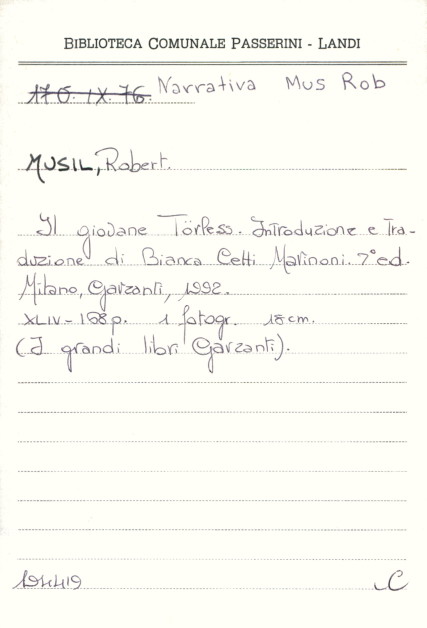 BIBLIOTECA COMUNALE PASSERINI - LANDI
170. IX. 76. Narrativa Mus Rob
MUSIL, Robert.
Il giovane Törless. Introduzione e Tra-
duzione di Bianca Cetti Marinoni. 7° ed.
Milano, Garzanti, 1992.
XLIV - 168 p. 1 fotogr. 18 cm.
(I grandi libri Garzanti).
194419 C